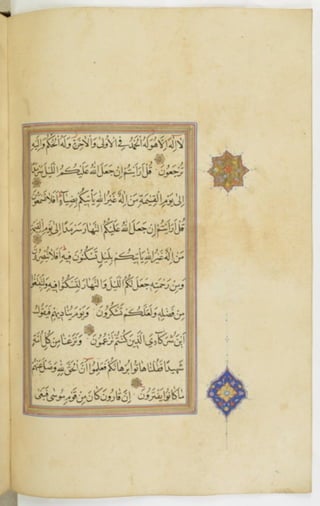 لَا إِلَهَ إِلَّا هُوَ لَهُ الْحَمْدُ فِي الْأُولَى وَالْآخِرَةِ وَلَهُ الْحُكْمُ وَإِلَيْهِ
تُرْجَعُونَ قُلْ أَرَأَيْتُمْ إِنْ جَعَلَ اللَّهُ عَلَيْكُمُ اللَّيْلَ سَرْمَدًا
إِلَى يَوْمِ الْقِيمَةِ مَنْ إِلَهٌ غَيْرُ اللَّهِ يَأْتِيكُمْ بِضِيَاءٍ أَفَلَا تَسْمَعُونَ
قُلْ أَرَأَيْتُمْ إِنْ جَعَلَ اللَّهُ عَلَيْكُمُ النَّهَارَ سَرْمَدًا إِلَى يَوْمِ الْقِيمَةِ
مَنْ إِلَهٌ غَيْرُ اللَّهِ يَأْتِيكُمْ بِلَيْلٍ تَسْكُنُونَ فِيهِ أَفَلَا تُبْصِرُونَ
وَمِنْ رَحْمَتِهِ جَعَلَ لَكُمُ اللَّيْلَ وَالنَّهَارَ لِتَسْكُنُوا فِيهِ وَلِتَبْتَغُوا
مِنْ فَضْلِهِ وَلَعَلَّكُمْ تَشْكُرُونَ وَيَوْمَ يُنَادِيهِمْ فَيَقُولُ
أَيْنَ شُرَكَاءِيَ الَّذِينَ كُنْتُمْ تَزْعُمُونَ وَنَزَعْنَا مِنْ كُلِّ أُمَّةٍ
شَهِيدًا فَقُلْنَا هَاتُوا بُرْهَانَكُمْ فَعَلِمُوا أَنَّ الْحَقَّ لِلَّهِ وَضَلَّ عَنْهُمْ
مَا كَانُوا يَفْتَرُونَ إِنَّ قَارُونَ كَانَ مِنْ قَوْمِ مُوسَى فَبَغَى